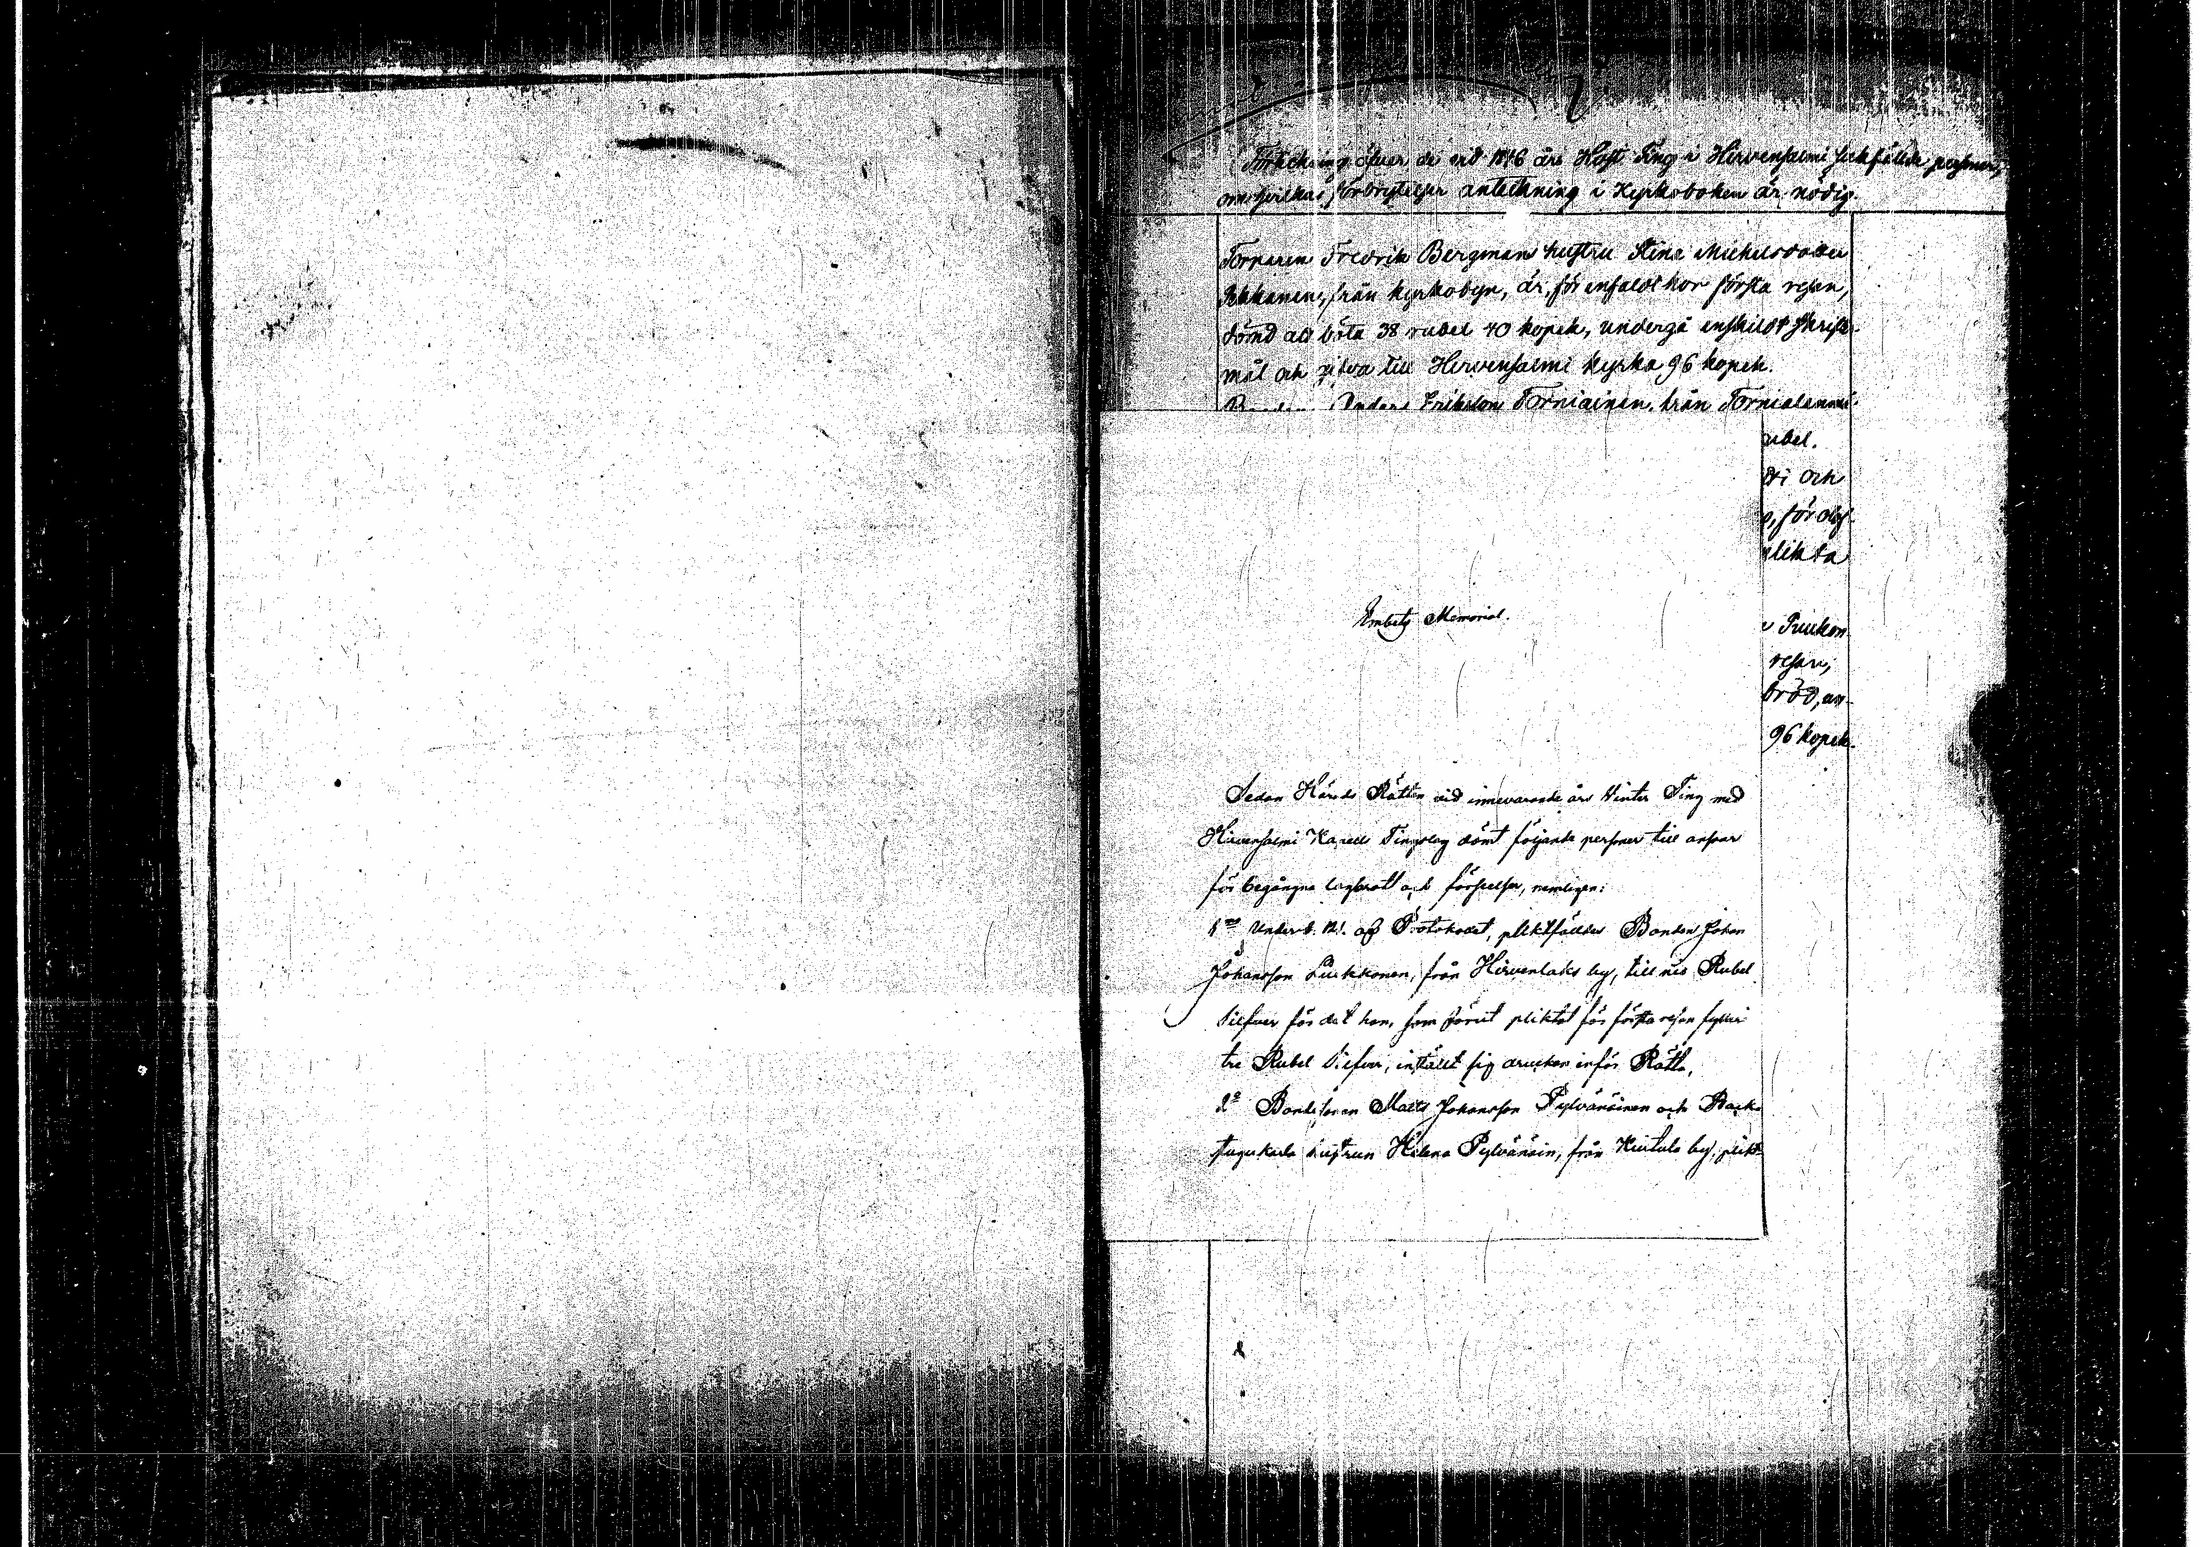 Förteckning öfver de vid 1846 års Höst Ting i Hirvensalmi sakfällde personer,
om hvilkas förbrytelser anteckning i Kyrkoboken är nödig.
Torparen Fredrik Bergmans hustru Stina Michelsdotter
från kyrkobyn, är, för enfaldt hor första resan,
dömd att böta 38 rubel 40 kopek, undergå enskildt skrifte-
mål och gifva till Hirvensalmi kyrka 96 kopek.
Anders Eriksson Torniainen, från Tornialanmi
ubel.
och
för
likta
Puukon
resan;
bröd, un-
96 kopek.
Embets Memorial.
Sedan Härads Rätten vid innevarande års Vinter Ting med
Hirvensalmi Kapells Tingslag dömt följande personer till ansvar
för begångne lagbrott och förseelser, nemligen:
1mo Under § 121. af Protokollet, pliktfälldes Bonden Johan
Johansson Liukkonen, från Hirvenlaks by, till nio Rubel
Silfver för det han, som förut pliktat för första resan fylleri
tre Rubel Silfver, instält sig drucken inför Rätta,
2o Bondesonen Matts Johansson Pylvänäinen och Back-
stugukarls hustrun Helena Pylvänäin, från Kuitula by, plikt-